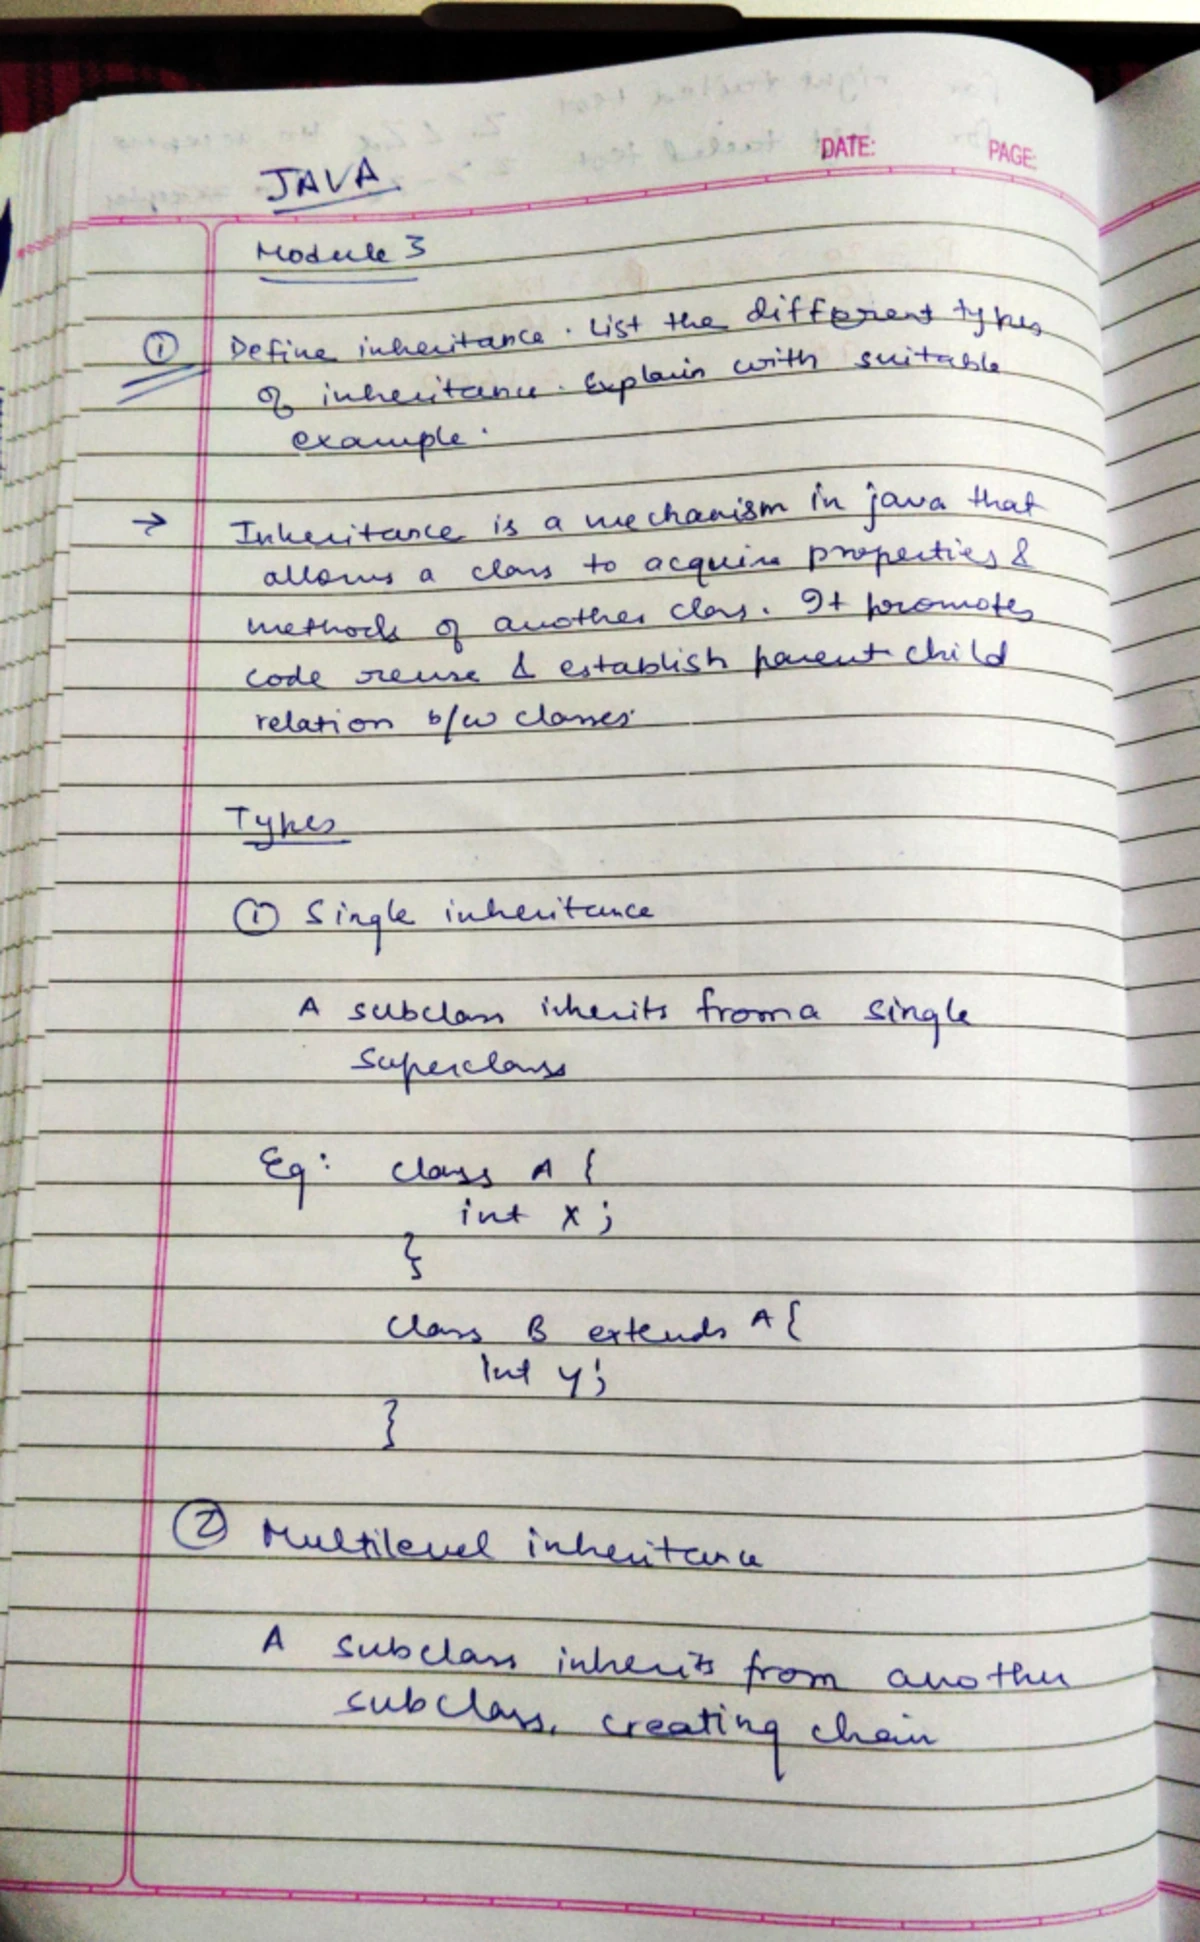 DATE:
PAGE:
JAVA
Module 3
① Define inheritance. List the different types
of inheritance. Explain with suitable
example.
→ Inheritance is a mechanism in java that
allows a class to acquire properties &
methods of another class. It promotes
code reuse & establish parent child
relation b/w classes.
Types
① Single inheritance
A subclass inherits from a single
superclass
Eg: class A {
int x;
}
class B extends A {
int y;
}
② Multilevel inheritance
A subclass inherits from another
subclass, creating chain